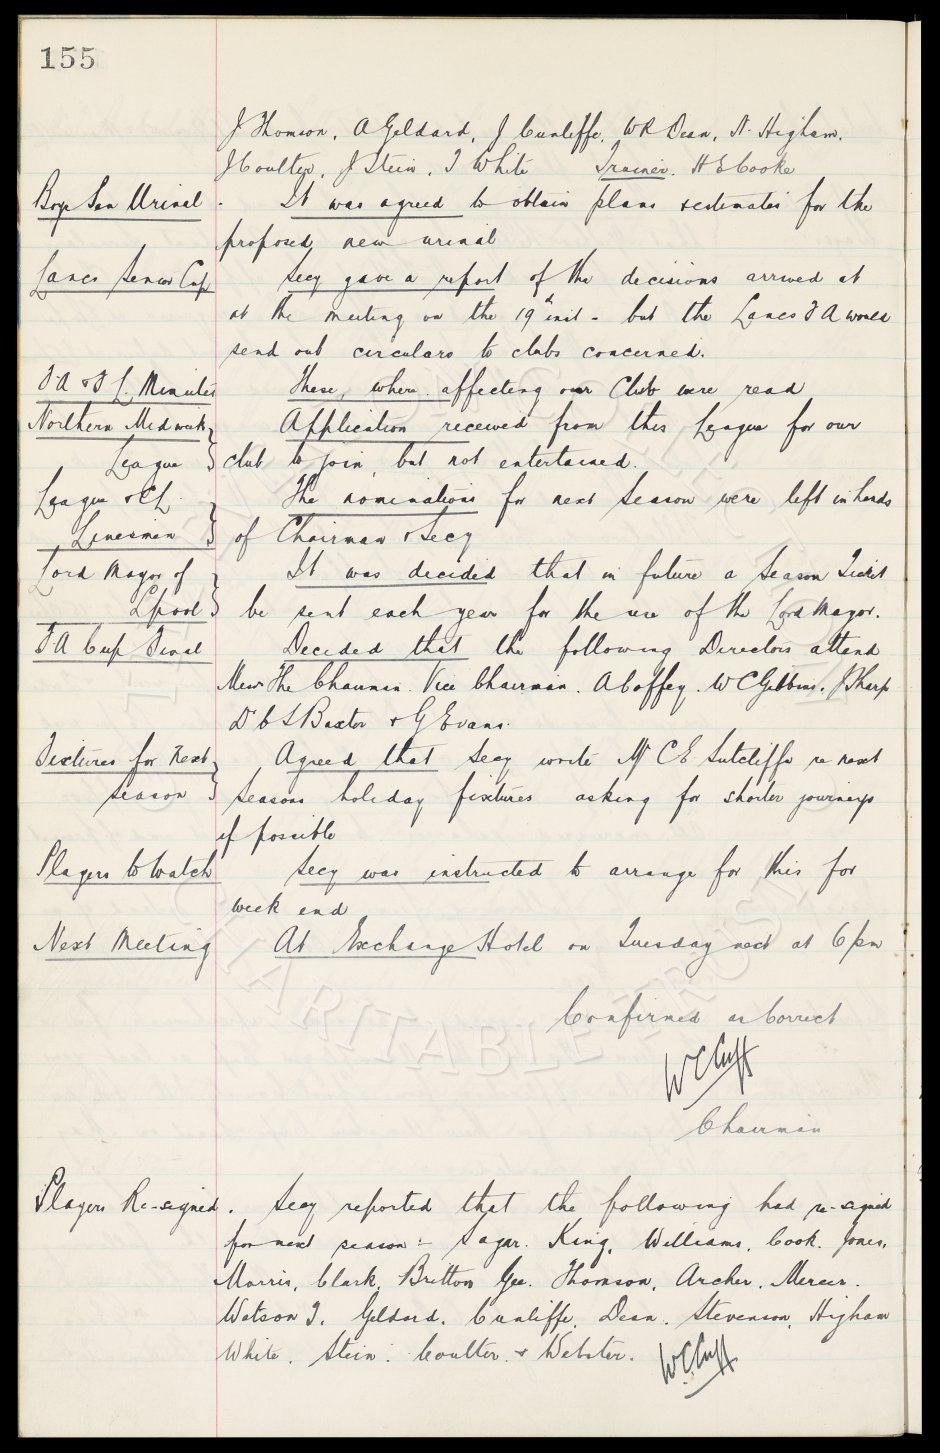 155
J Thomson, A Geldard, J Cunliffe, W R Dean, N. Higham,
J Coulter, J Stein, T White Trainer. H E Cooke
Boys Pen Urinal . It was agreed to obtain plans & estimates for the
proposed new urinal
Lancs Senior Cup Secy gave a report of the decisions arrived at
at the meeting on the 19th inst - but the Lancs F A would
send out circulars to clubs concerned.
F.A & F L. Minutes These, where affecting our Club were read
Northern Mid week Application received from this League for our
League club to join, but not entertained.
League & CL The nominations for next season were left in hands
Linesmen of Chairman & Secy
Lord Mayor of It was decided that in future a Season Ticket
Lpool be sent each year for the use of the Lord Mayor.
F.A Cup Final Decided that the following Directors attend
Mess The Chairman. Vice Chairman. A Coffey. W C Gibbins. J Sharp
Dr C S Baxter & G Evans.
Fixtures for next Agreed that Secy write Mr C E Sutcliffe re next
season seasons holiday fixtures asking for shorter journeys
if possible
Players to Watch Secy was instructed to arrange for this for
week end
Next Meeting At Exchange Hotel on Tuesday next at 6 pm
Confirmed as Correct
W C Cuff
Chairman
Players Re-signed. Secy reported that the following had re-signed
for next season :- Sagar. King, Williams. Cook. Jones,
Morris, Clark, Britton Gee. Thomson, Archer. Mercer.
Watson T. Geldard. Cunliffe. Dean. Stevenson. Higham
White. Stein. Coulter. & Webster. W.C. Cuff
CHARITABLE TRUST